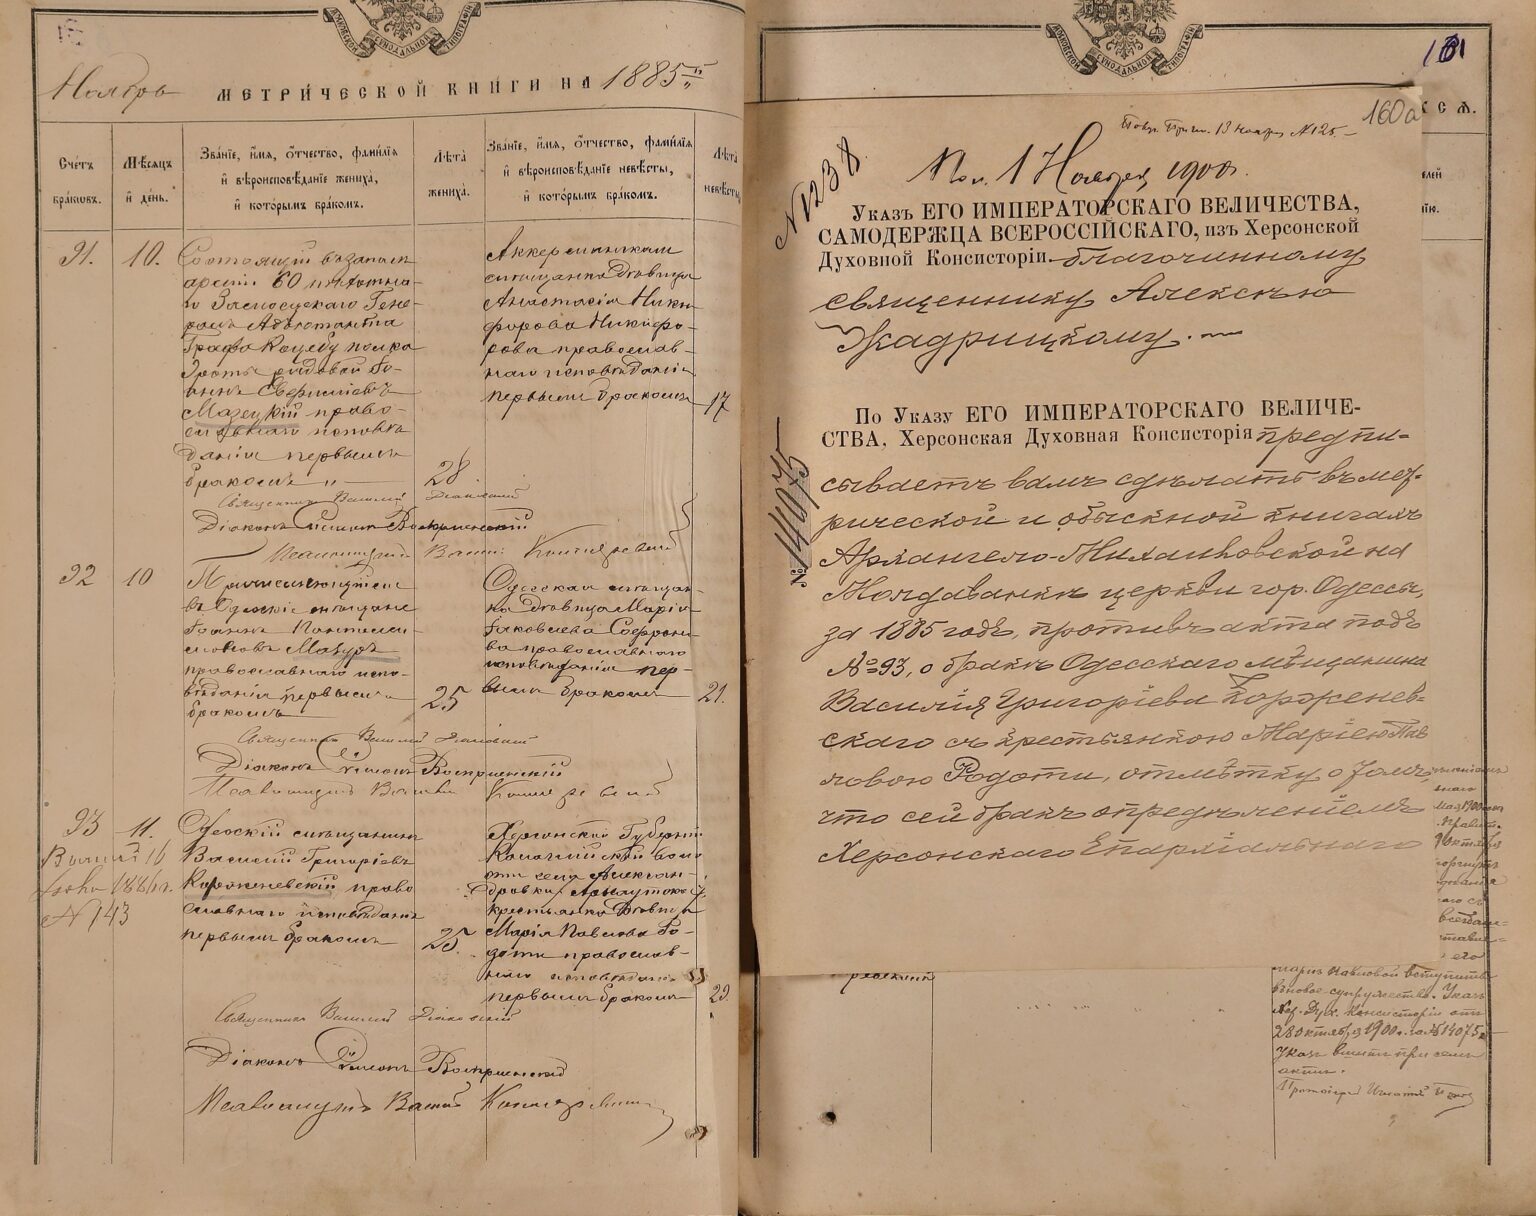 Ноябрь МЕТРИЧЕСКОЙ КНИГИ НА 1885
Счетъ браковъ.
Мѣсяцъ и день.
Званіе, имя, отчество, фамилія
и вѣроисповѣданіе жениха,
и которымъ бракомъ.
Лѣта
жениха.
Званіе, имя, отчество, фамилія
и вѣроисповѣданіе невѣсты,
и которымъ бракомъ.
Лѣта
невѣсты
91.
10.
Состоящій въ запасѣ
арміи 60 пѣхотна-
го Замосцскаго Гене-
ралъ Адьютанта
Графа Коцебу полка
рядовой Іо-
аннъ
Мазецкій право-
славнаго исповѣ
данія первымъ
бракомъ
28
Аккерманская
мѣщанка дѣвица
Анастасія Ники
форова Никифо-
рова православ-
наго исповѣданія
первымъ бракомъ
17
Священникъ Василій
Діаконъ Симеонъ Воскресенскій
Псаломщикъ Васил:
92
10
Причисляющійся
въ Одесскіе мѣщане
Іоаннъ Пантелеи-
моновъ Мазуръ
православнаго испо-
вѣданія первымъ
бракомъ
25
Одесская мѣщан-
ка дѣвица Марія
Іаковлева Софроно-
ва православнаго
исповѣданія пер-
вымъ бракомъ
21.
Священникъ Василій
Діаконъ Симеонъ Воскресенскій
Псаломщикъ Василій
93
11.
N 143
Одесскій мѣщанинъ
Василій Григоріевъ
Корженевскій право
славнаго исповѣданія
первымъ бракомъ
25.
Херсонской Губерніи
воло
сти села Алексан-
дровки,
крестьянка дѣвица
Марія Павлова Ро-
доти православ-
наго исповѣданія
первымъ бракомъ
Священникъ Василій
Діаконъ Симеонъ Воскресенскій
Псаломщикъ Василій
161
160а
13 Ноября N 125
N 1238
Пол. 1 Ноября 1900.
Указъ ЕГО ИМПЕРАТОРСКАГО ВЕЛИЧЕСТВА,
САМОДЕРЖЦА ВСЕРОССІЙСКАГО, изъ Херсонской
Духовной Консисторіи благочинному
священнику Алексѣю
Жадрицкому.
№ 14075
По Указу ЕГО ИМПЕРАТОРСКАГО ВЕЛИЧЕ-
СТВА, Херсонская Духовная Консисторія предпи-
сываетъ вамъ сдѣлать въ мет-
рической и обыскной книгахъ
Архангело-Михайловской на
Молдаванкѣ церкви гор. Одессы,
за 1885 годъ, противъ акта подъ
№ 93, о бракѣ Одесскаго мѣщанина
Василія Григоріева Корженев-
скаго съ крестьянкою Маріею Пав
ловою Родоти, отмѣтку о томъ,
что сей бракъ опредѣленіемъ
Херсонскаго Епархіальнаго
Павловой вступить
въ новое супружество. Указъ
Хер. Дух. Консисторіи отъ
28 октября 1900 г. за № 14075
Указъ при семъ
актѣ.
Протоіерей